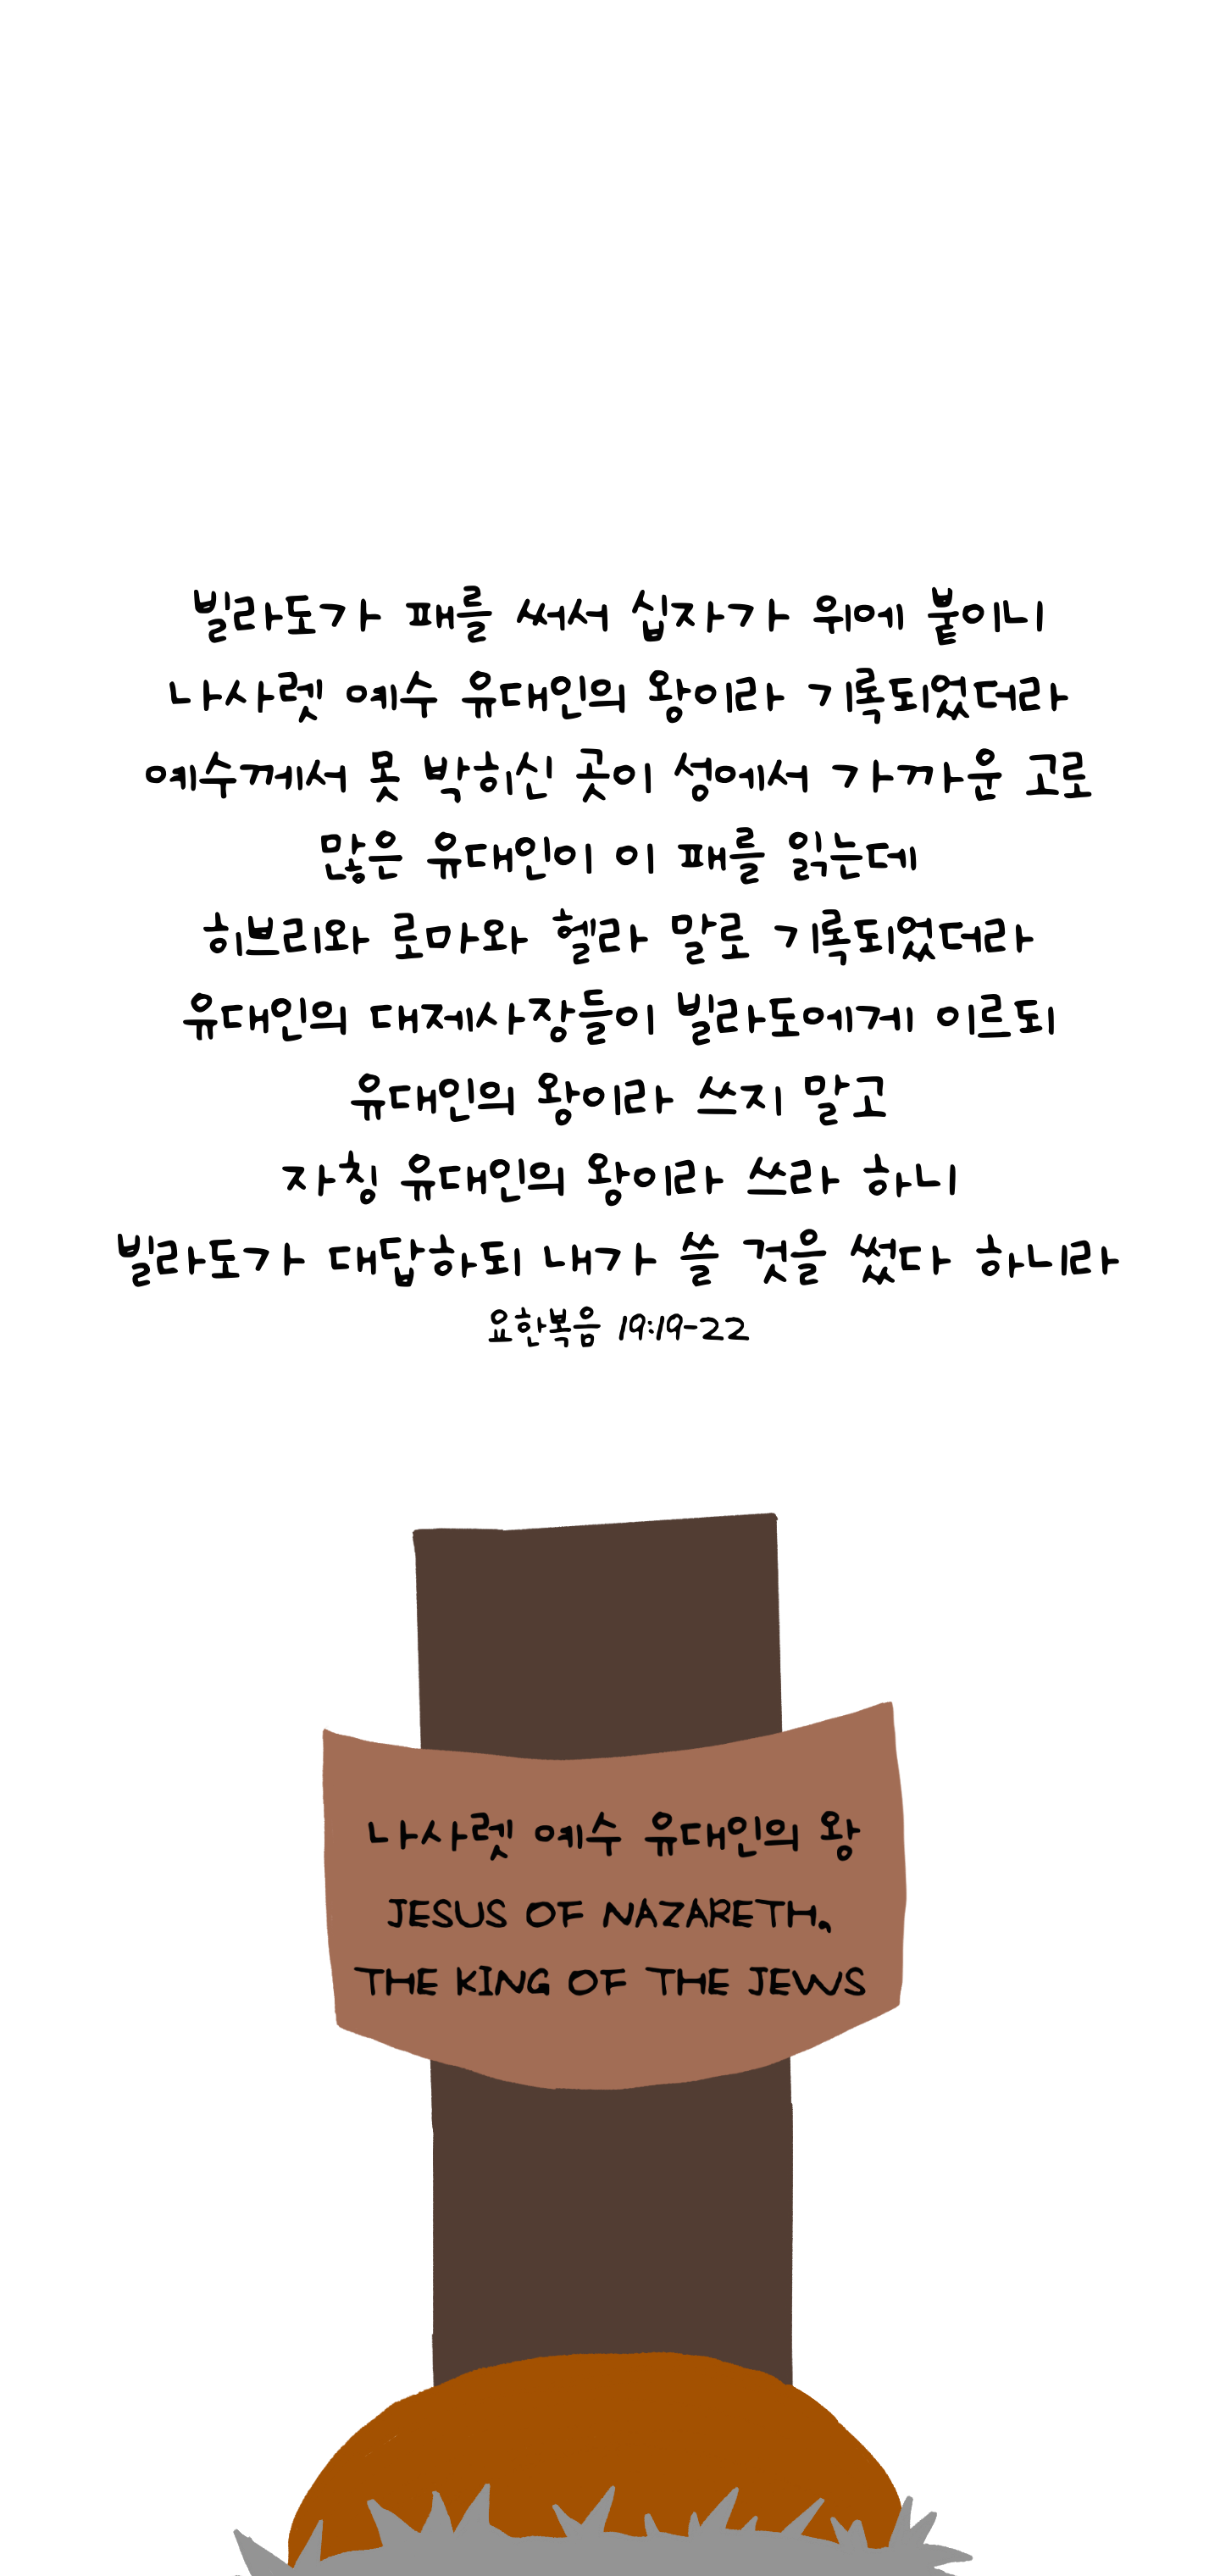 빌라도가 패를 써서 십자가 위에 붙이니
나사렛 예수 유대인의 왕이라 기록되었더라
예수께서 못 박히신 곳이 성에서 가까운 고로
많은 유대인이 이 패를 읽는데
히브리와 로마와 헬라 말로 기록되었더라
유대인의 대제사장들이 빌라도에게 이르되
유대인의 왕이라 쓰지 말고
자칭 유대인의 왕이라 쓰라 하니
빌라도가 대답하되 내가 쓸 것을 썼다 하니라
요한복음 19:19-22
나사렛 예수 유대인의 왕
JESUS OF NAZARETH,
THE KING OF THE JEWS